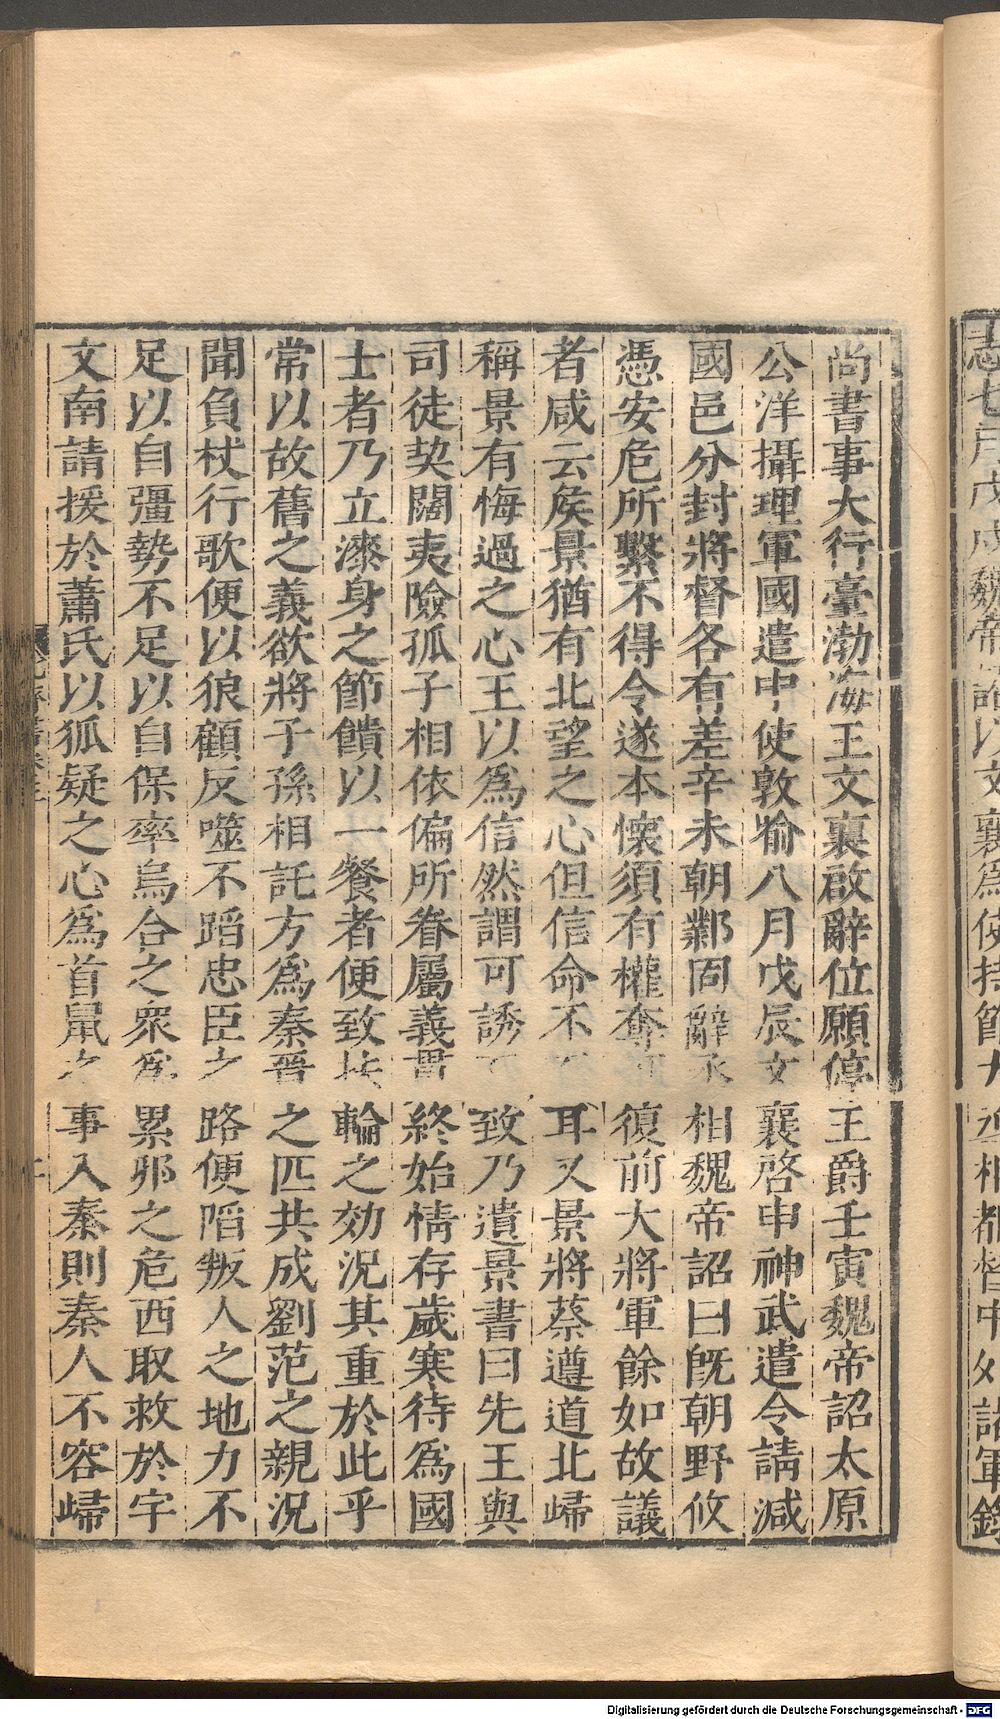 尚書事大行臺渤海王文襄啟辭位願停王爵壬寅魏帝詔太原
公洋攝理軍國遣中使敦喻八月戊辰文襄啓申神武遣令請減
國邑分封將督各有差辛未朝鄴固辭丞相魏帝詔曰旣朝野攸
憑安危所繫不得令遂本懷須有權奪可復前大將軍餘如故議
者咸云矦景猶有北望之心但信命不耳又景將蔡遵道北歸
稱景有悔過之心王以爲信然謂可誘致乃遺景書曰先王與
司徒契闊夷險孤子相依偏所眷屬義貫終始情存歲寒待爲國
士者乃立漆身之節饋以一餐者便致扶輪之効況其重於此乎
常以故舊之義欲將子孫相託方爲秦晉之匹共成劉范之親況
聞負杖行歌便以狼顧反噬不蹈忠臣之路便陷叛人之地力不
足以自彊勢不足以自保率烏合之衆爲累卵之危西取救於宇
文南請援於蕭氏以狐疑之心爲首鼠之事入秦則秦人不容歸
志七月戊戌魏帝詔以文襄爲使持節大丞相都督中外諸軍錄
Digitalisierung gefördert durch die Deutsche Forschungsgemeinschaft - DFG